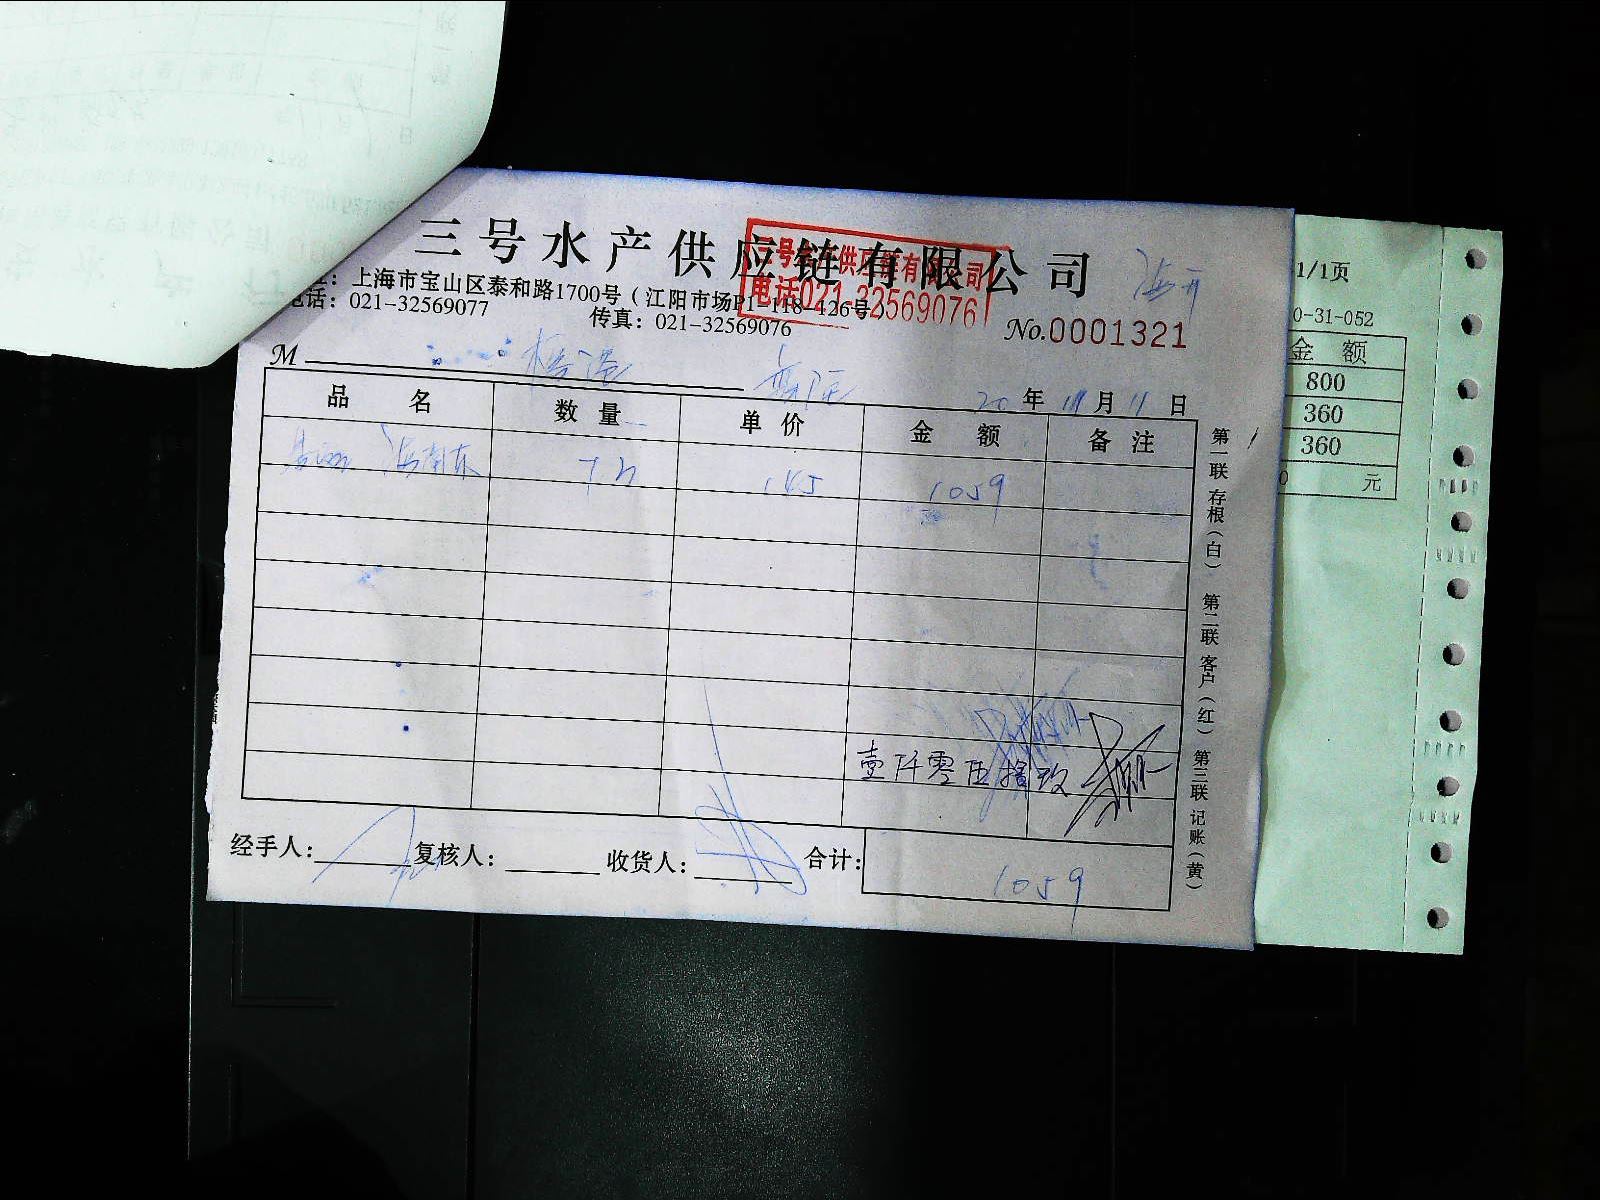 三号水产供应链有限公司
三号水产供应链有限公司
电话021-32569076
址：上海市宝山区泰和路1700号（江阳市场P1-118-126号
电话：021-32569077
传真：021-32569076
No.0001321
M
20年11月11日
品名 数量 单价 金额 备注
海南东 7.3 145 1059
壹仟零伍拾玖
经手人： 复核人： 收货人： 合计： 1059
第一联 存根（白） 第二联 客户（红） 第三联 记账（黄）
1/1页
0-31-052
金 额
800
360
360
0 元